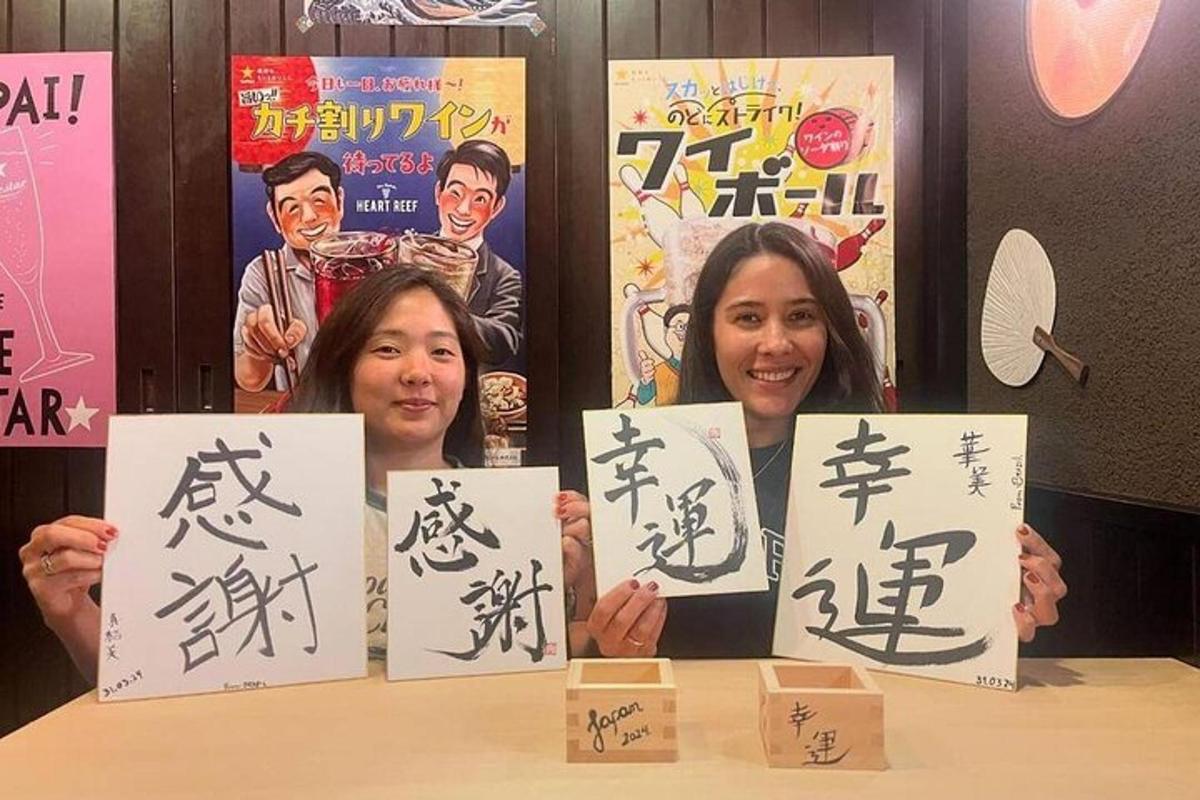 PAI!
TAR
今日も一日、お疲れ様〜!
旨いっ!!
カチ割りワインが
待ってるよ
HEART REEF
スカッとはじける、
のどにストライク!
ワイ
ボール
ワインの
ソーダ割り
感
謝
31.03.24
感
謝
幸
運
幸
運
華美
From Brazil
31.03.24
Japan
2024
幸
運